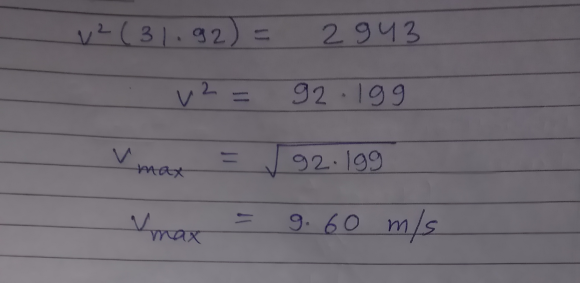 v²(31.92) = 2943
v² = 92.199
v_max = √92.199
v_max = 9.60 m/s